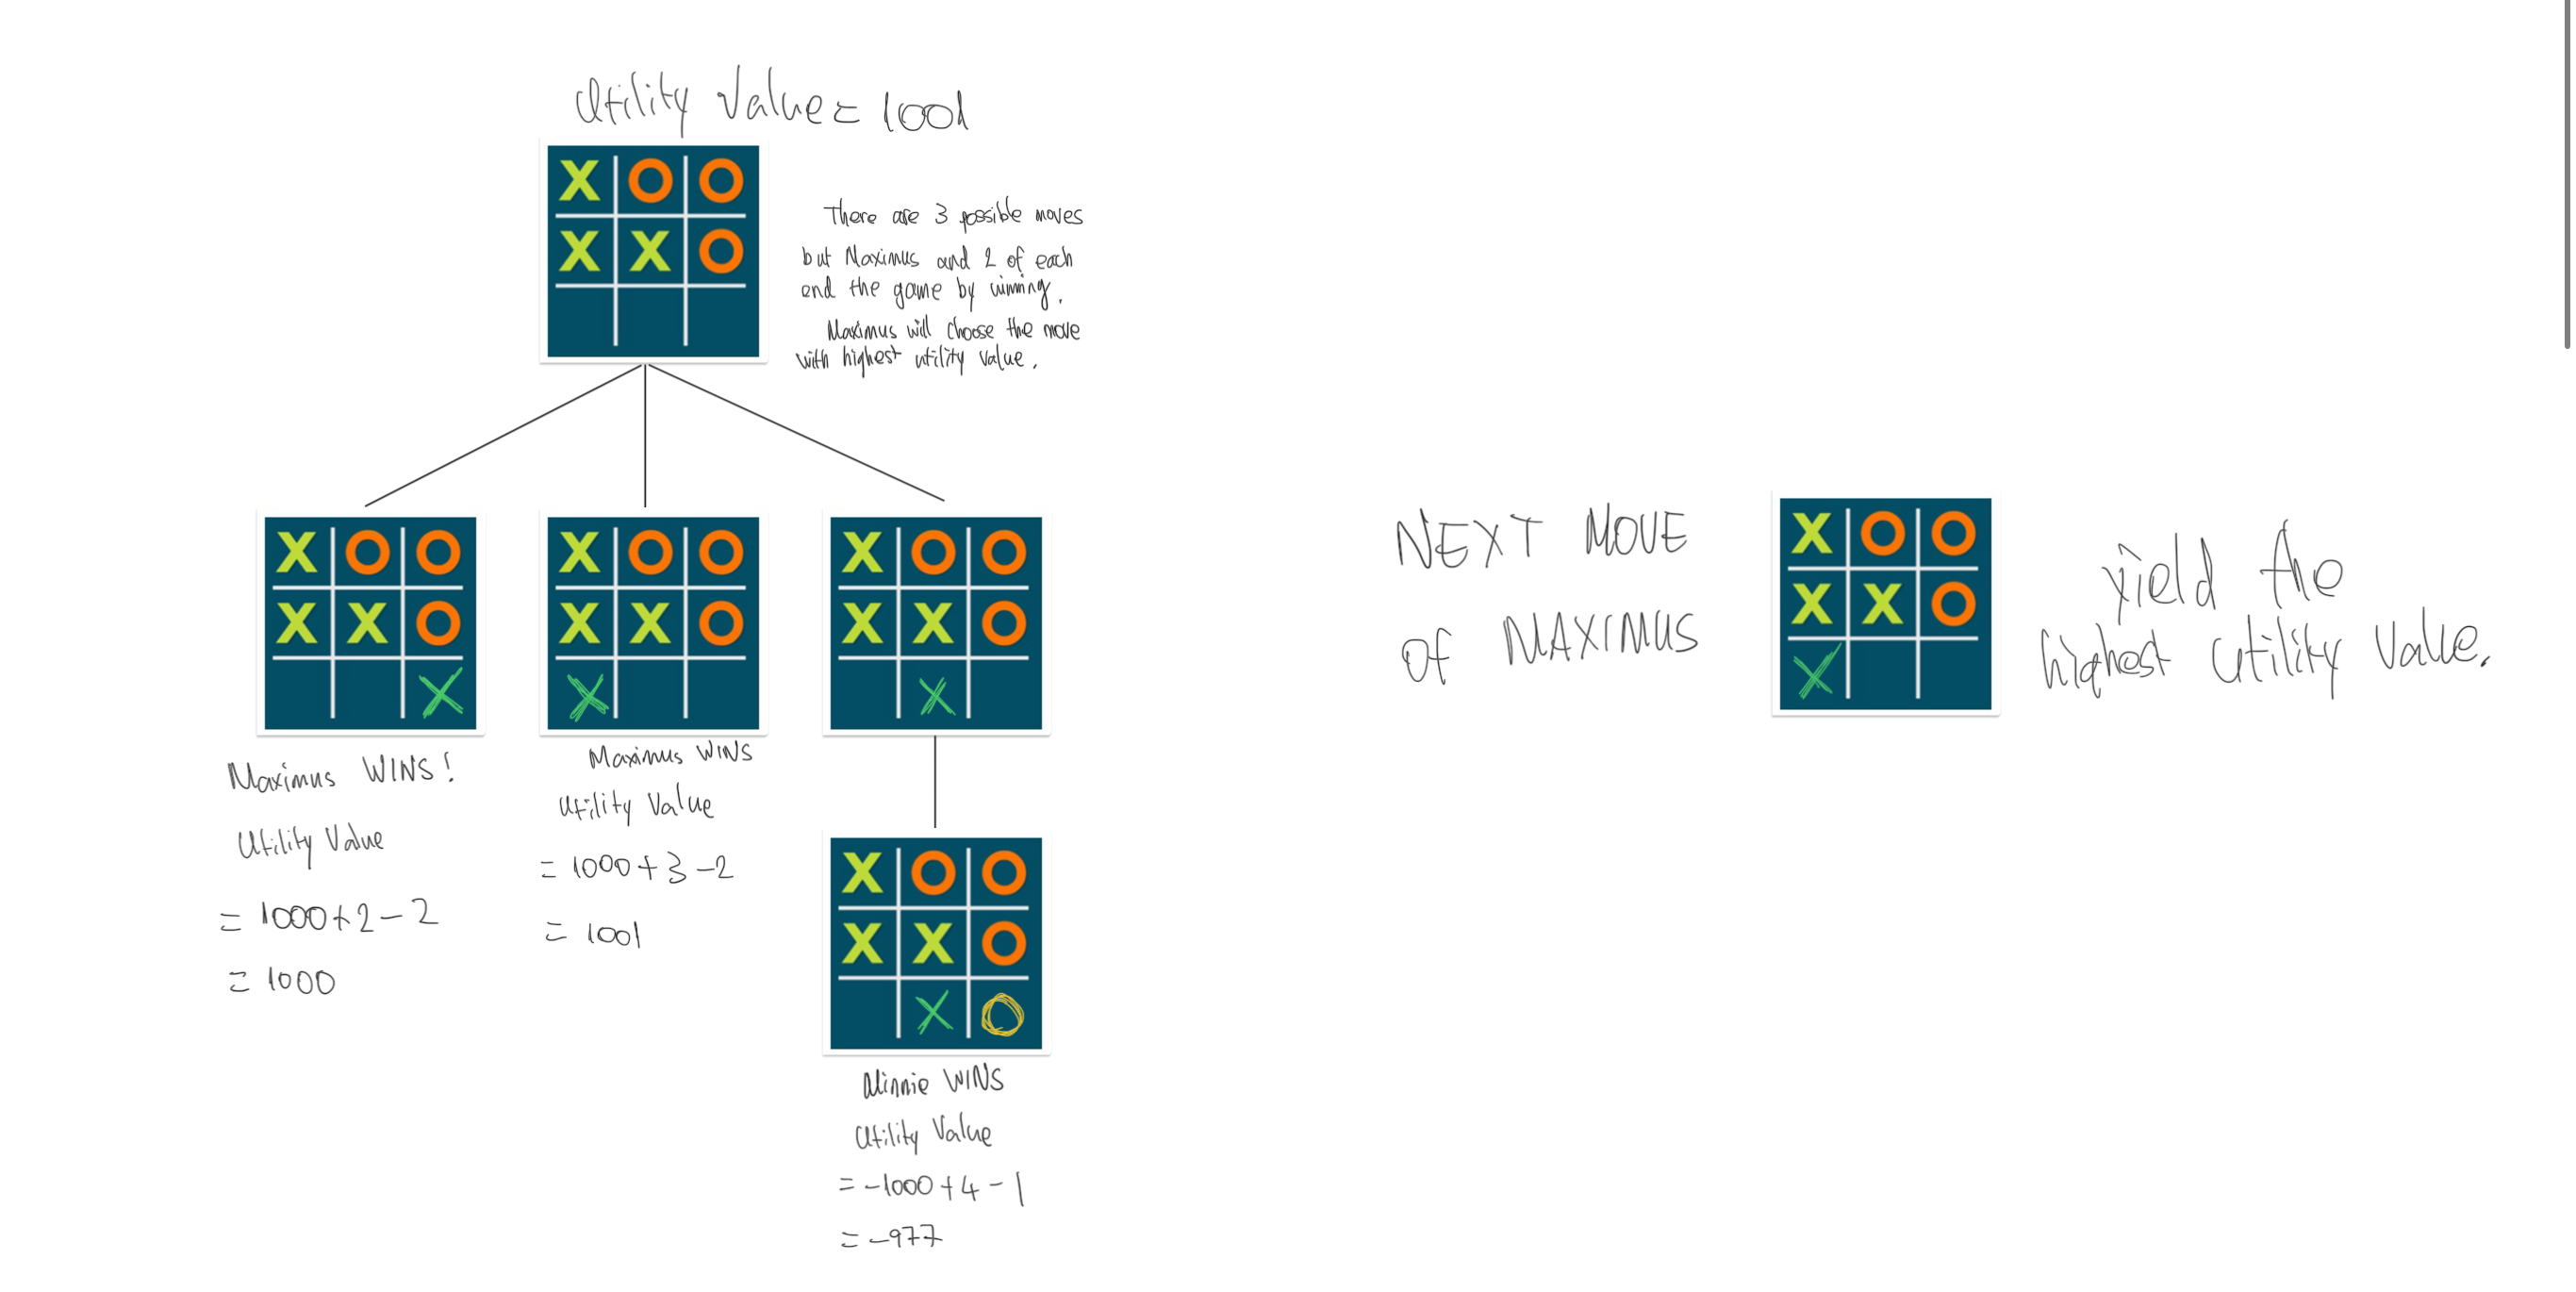 Utility Value = 1001
X O O
X X O
There are 3 possible moves
but Maximus and 2 of each
end the game by winning.
Maximus will choose the move
with highest utility value.
X O O
X X O
X
Maximus WINS!
Utility Value
= 1000 + 2 - 2
= 1000
X O O
X X O
X
Maximus WINS
Utility Value
= 1000 + 3 - 2
= 1001
X O O
X X O
X
X O O
X X O
X O
Minnie WINS
Utility Value
= -1000 + 4 - 1
= -977
NEXT MOVE
OF MAXIMUS
X O O
X X O
X
yield the
highest utility value.